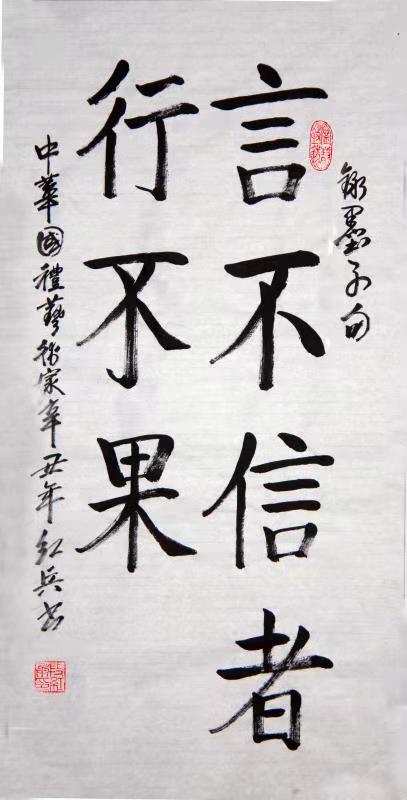 錄墨子句
言不信者
行不果
中華國禮藝術家辛丑年红兵书